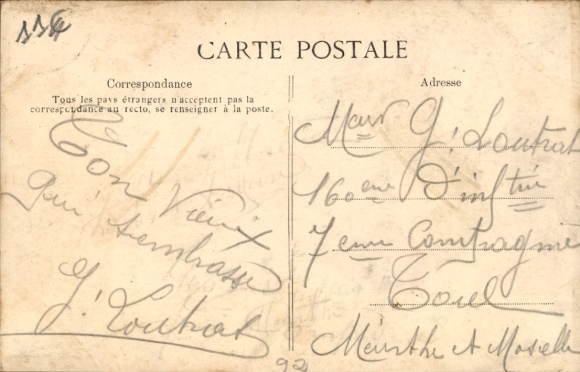 114
CARTE POSTALE
Correspondance
Tous les pays étrangers n'acceptent pas la
correspondance au recto, se renseigner à la poste.
Ton Vieux
qui t'embrasse
G. Loutrat
Adresse
G. Loutrat
160eme D'inftrie
7eme Compagnie
Toul
Meurthe et Moselle
92